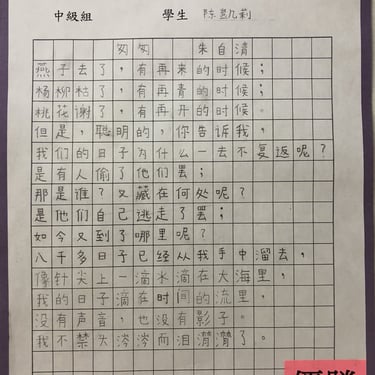 中級組 學生 陈凯莉
匆匆 朱自清
燕子去了，有再来的时候；
杨柳枯了，有再青的时候；
桃花谢了，有再开的时候。
但是，聪明的，你告诉我，
我们的日子为什么一去不复返呢？
是有人偷了他们罢；
那是谁？又藏在何处呢？
是他们自己逃走了罢；
如今又到了哪里呢？
八千多日子已经从我手中溜去，
像针尖上一滴水滴在大海里，
我的日子滴在时间的流里，
没有声音，也没有影子。
我不禁头涔涔而泪潸潸了。